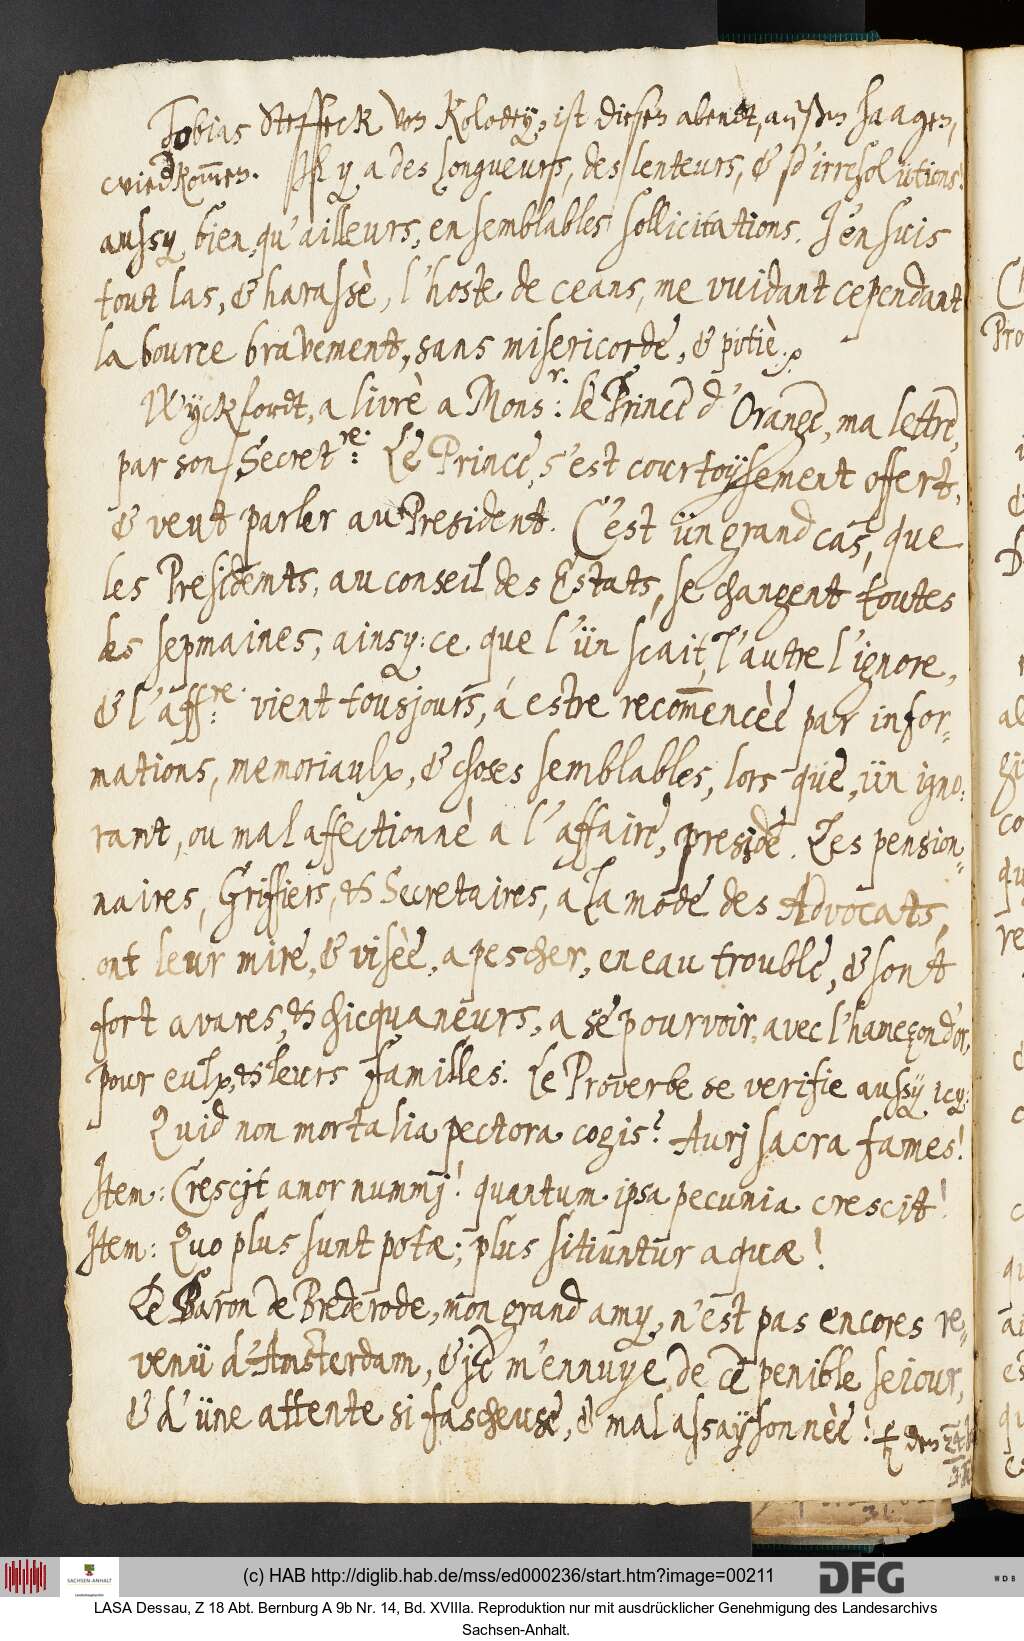 Tobias Steffeck von Kolodey, ist diesen abendt, außm Haagen,
wied kom̃en. Il y a des longueurs, des lenteurs, & d'irresolütions
aussy bien, qu'ailleurs, en semblables sollicitations. J'en suis
tout las, & harassè, l'hoste de ceans, me vuidant cependant
la bource bravement, sans misericorde, & pitiè.
Wyckfordt, a livrè a Mons:r. le Prince d'Orange, ma lettre,
par son Secret:re. Le Prince, s'est courtoysement offert,
& veut parler au President. C'est ün grand cas, que
les Presidents, au conseil des Estats, se changent toutes
les sepmaines, ainsy: ce que l'ün scait, l'autre l'ignore,
& l'aff:re. vient tousjours, á estre recom̃encèe par infor-
mations, memoriaulx, & choses semblables, lors que, ün igno-
rant, ou mal affectionnè a l'affaire, preside. Les pension-
naires, Griffiers, & Secretaires, a la mode des Advocats,
ont leur mire, & visèe, a pescher, en eau trouble, & sont
fort avares, & chicquaneurs, a se pourvoir, avec l'hameçon d'or,
pour eulx, & leurs familles. Le Proverbe se verifie aussÿ icy:
Quid non mortalia pectora cogis? Aurj sacra fames!
Item: Crescit amor nummj! quantum ipsa pecunia crescit!
Item: Quo plus sunt potæ; plus sitiuntur aquæ!
Le Baron de Brederode, mon grand amy, n'est pas encores re-
venü d'Amsterdam, & il m'ennuye de ce penible sejour,
& d'üne attente si fascheuse, & mal assaÿsonnèe! den
(c) HAB http://diglib.hab.de/mss/ed000236/start.htm?image=00211
SACHSEN-ANHALT
DFG
WDB
LASA Dessau, Z 18 Abt. Bernburg A 9b Nr. 14, Bd. XVIIIa. Reproduktion nur mit ausdrücklicher Genehmigung des Landesarchivs
Sachsen-Anhalt.